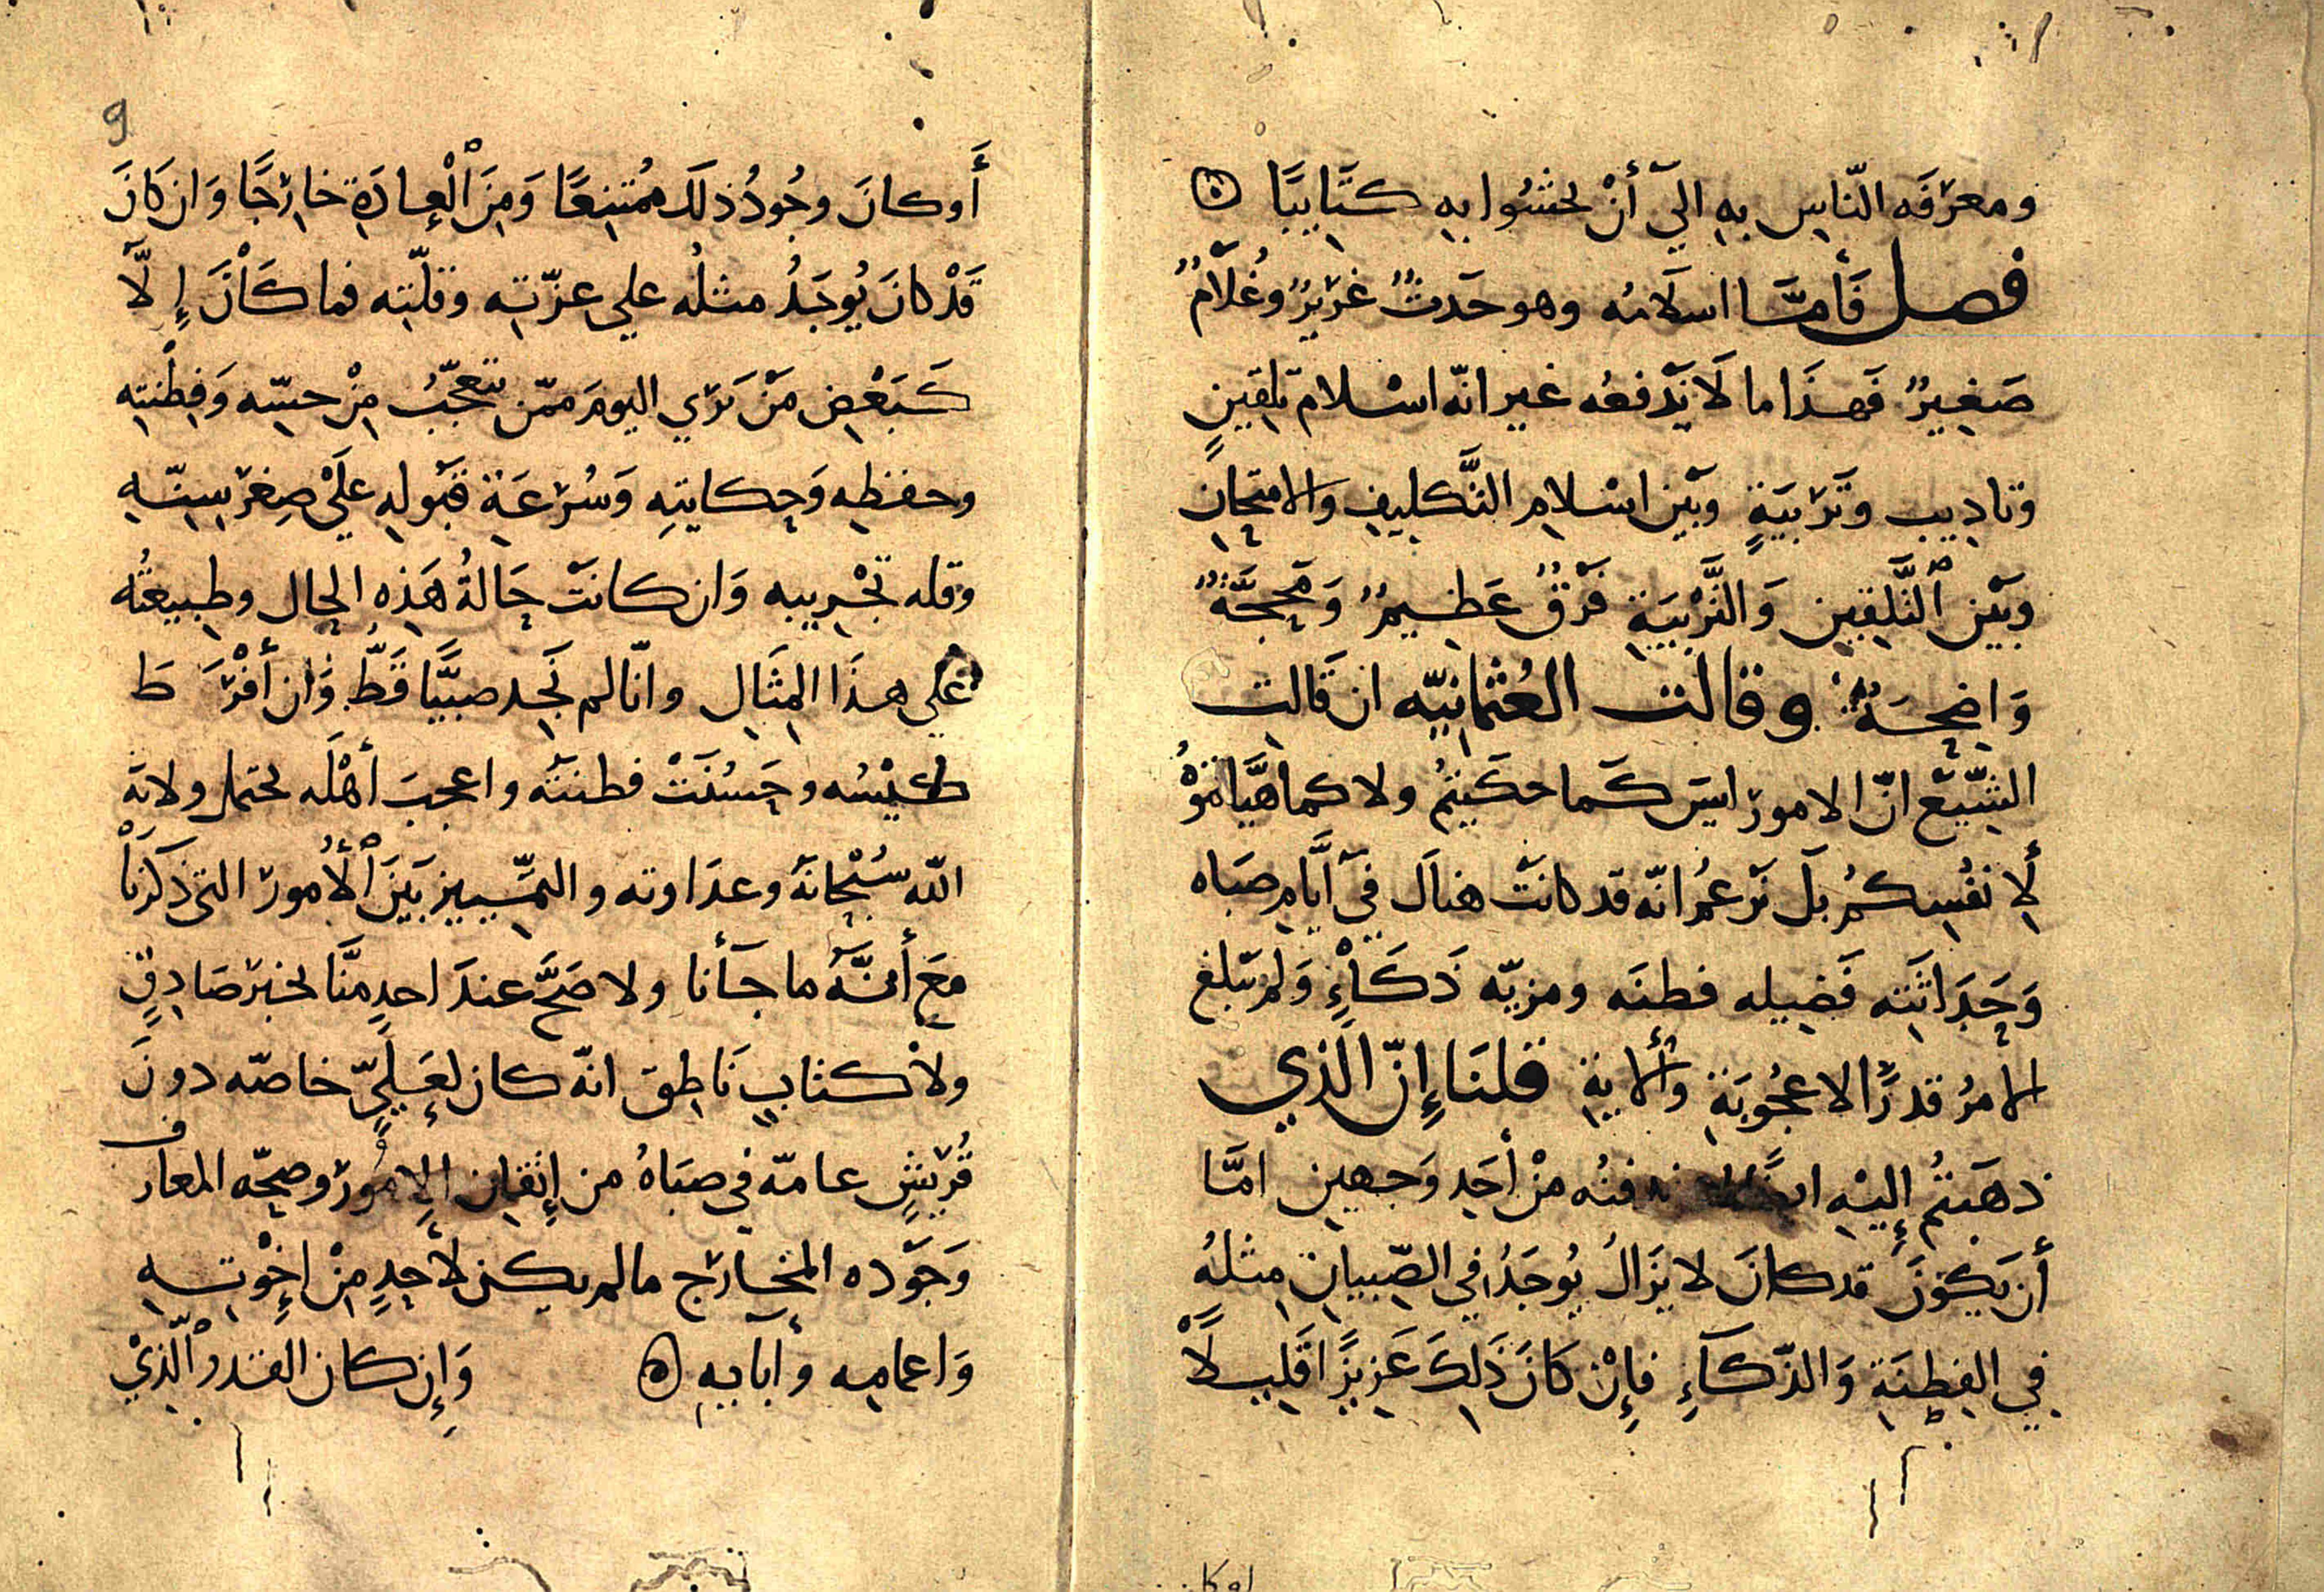 ومعرفه الناس به الي أن يحشوا به كتابيًا ه
فصل فأمّا اسلامه وهو حَدثٌ غريرٌ وغُلامٌ
صَغيرٌ فَهذَا ما لَا نَدْفعُه غير انّه اسْلام تلقينٍ
وتاديب وتَرْبيَةٍ وبَيْن اسْلام التَّكليفِ والامتحان
وبَيْن التَّلقين وَالتَّرْبيَةِ فَرْقٌ عَظيمٌ وَمَحجَّةٌ
وَاضحَةٌ وقالت العُثمانيّه ان قَالت
الشّيَع انّ الامورَ ليسَ كَما حكَيتمُ ولا كما هيَّاتموْهُ
لِأنفُسِكمُ بَل نَزعمُ انّه قد كانَتْ هناك في أيَّامِ صبَاه
وَحَدَاثَتِه فَضِيله فطنَه ومزيّه ذَكَاْءٍ وَلم يَبلغ
الامرُ قدرَ الاعجُوبَةِ والايةِ قلنَا إنّ الَّذي
ذهَبتُم إليْهِ فيه مِنْ أحَدِ وَجهين امَّا
أن يَكوْنَ قد كانَ لا يزَالُ يُوجَدُ في الصّبيان مثلهُ
في الفِطنَةِ وَالذّكآءِ فإنْ كَانَ ذَلِكَ عَزيزًا قَليلًا
اوكان
9
أَوكانَ وجُودُ ذلكَ مُمتنِعًا وَمِنَ الْعادَةِ خارِجًا وَان كَانَ
قَدْ كانَ يُوجَدُ مثلُه علي عزّته وقلّته فما كَانَ إلَّا
كَبَعْض مَنْ نَرَي اليومَ ممّن نتعجّبُ مِنْ حسّه وَفِطْنته
وحفظِه وَحِكايتِهِ وَسُرْعَةِ قبُولهِ عَلَيْ صِغرِ سِنّهِ
وقله تجْريبه وَان كانتْ حَالةُ هَذِه الحال وطبيعتُه
علي هذَا المِثَالِ وانّا لم نَجد صبيًّا قَطّ وَان أفْرَطَ
كَيْسُه وحَسُنَتْ فطنتُه واعجبَ أهْلَه يحتمل ولايَة
الله سُبْحانَهُ وعدَاوته والتمّييز بَيْنَ الْأُمورَ التي ذكَرْنَا
معَ أنّهُ ما جآءَنا ولا صَحَّ عندَ احدٍ منَّا بخبَرٍ صَادِقٍ
ولا كتابٍ نَاطِقٍ انّه كان لِعَلِيٍّ خاصّه دونَ
قُرَيْشٍ عامّه في صبَاهُ من إتقان الامُورَ وصحّه المعارف
وَجَوَّده المخارَج مالم يكن لأحدٍ مِنْ اخِوْتِهِ
وَاعمامِه وأبَآيِهِ ه وَإن كان القدر الَّذيْ